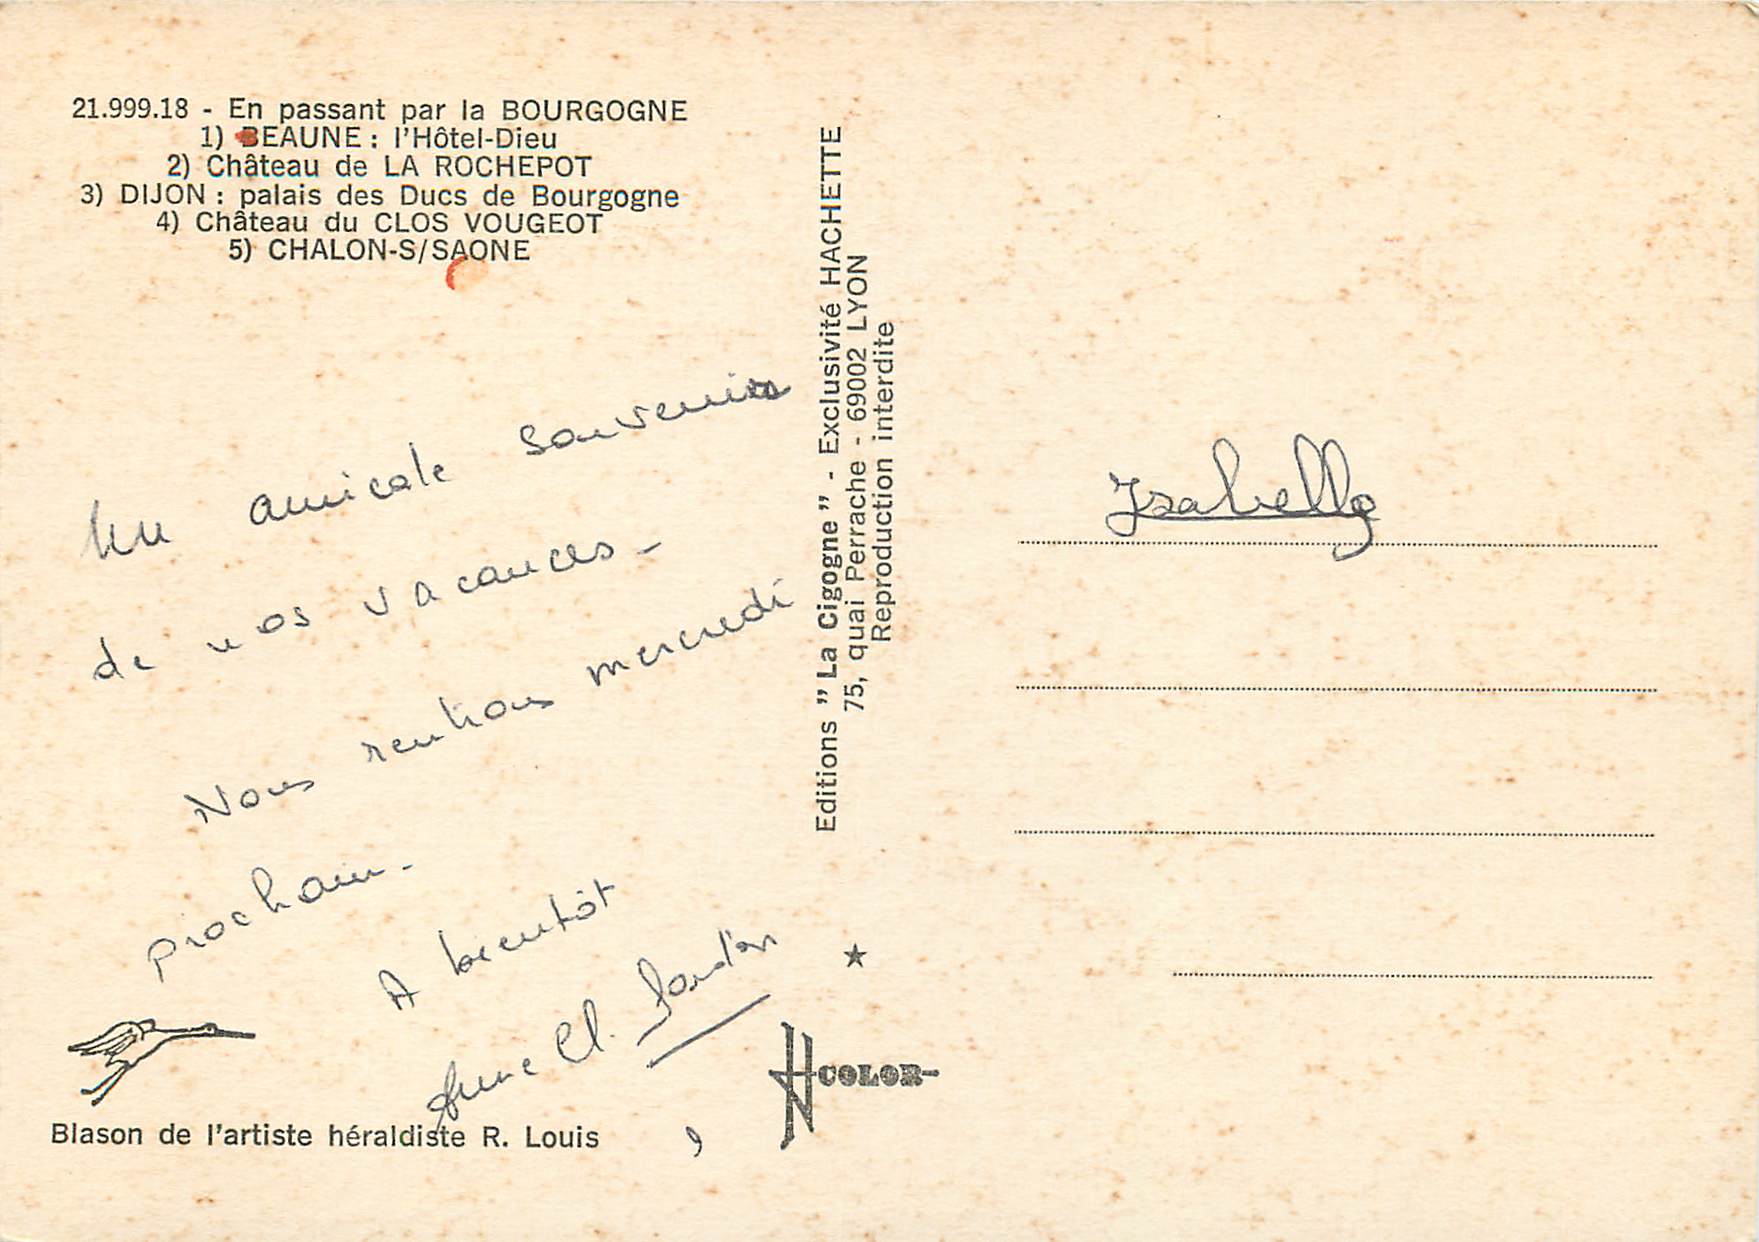 21.999.18 - En passant par la BOURGOGNE
1) BEAUNE : l'Hôtel-Dieu
2) Château de LA ROCHEPOT
3) DIJON : palais des Ducs de Bourgogne
4) Château du CLOS VOUGEOT
5) CHALON-S/SAONE
Un amicale souvenir
de nos vacances -
Nous rentrons mercredi
prochain -
A bientôt
Anne Cl.
Blason de l'artiste héraldiste R. Louis
Editions "La Cigogne" - Exclusivité HACHETTE
75, quai Perrache - 69002 LYON
Reproduction interdite
COLOR
Isabelle